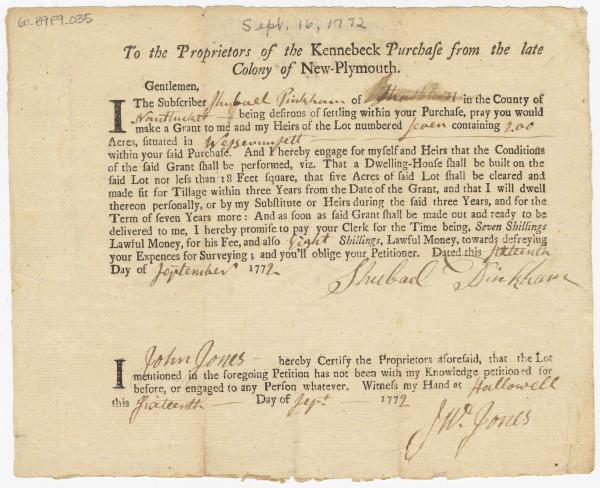 60-0989-035
Sept. 16, 1772
To the Proprietors of the Kennebeck Purchase from the late
Colony of New-Plymouth.
Gentlemen,
I The Subscriber Shubael Pinkham of in the County of
Nantucket being desirous of settling within your Purchase, pray you would
make a Grant to me and my Heirs of the Lot numbered Seven containing 200
Acres, situated in
within your said Purchase. And I hereby engage for myself and Heirs that the Conditions
of the said Grant shall be performed, viz. That a Dwelling-House shall be built on the
said Lot not less than 18 Feet square, that five Acres of said Lot shall be cleared and
made fit for Tillage within three Years from the Date of the Grant, and that I will dwell
thereon personally, or by my Substitute or Heirs during the said three Years, and for the
Term of seven Years more: And as soon as said Grant shall be made out and ready to be
delivered to me, I hereby promise to pay your Clerk for the Time being, Seven Shillings
Lawful Money, for his Fee, and also Eight Shillings, Lawful Money, towards defreying
your Expences for Surveying; and you'll oblige your Petitioner. Dated this Sixteenth
Day of September 1772
Shubael Pinkham
I John Jones hereby Certify the Proprietors aforesaid, that the Lot
mentioned in the foregoing Petition has not been with my Knowledge petitioned for
before, or engaged to any Person whatever. Witness my Hand at Hallowell
this Sixteenth Day of Sept 1772
Jno. Jones